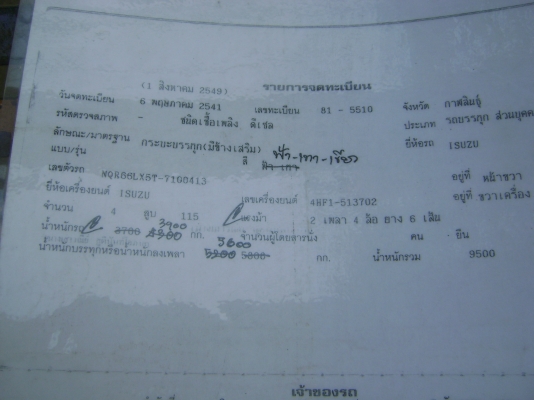 (1 สิงหาคม 2549) รายการจดทะเบียน
วันจดทะเบียน 6 พฤษภาคม 2541 เลขทะเบียน 81 - 5510 จังหวัด กาฬสินธุ์
รหัสตรวจสภาพ - ชนิดเชื้อเพลิง ดีเซล ประเภท รถบรรทุก ส่วนบุคคล
ลักษณะ/มาตรฐาน กระบะบรรทุก(มีข้างเสริม) ฟ้า-เทา-เขียว ยี่ห้อรถ ISUZU
แบบ/รุ่น สี ฟ้า เทา
เลขตัวรถ NQR66LX5T-7100413 อยู่ที่ หน้าขวา
ยี่ห้อเครื่องยนต์ ISUZU เลขเครื่องยนต์ 4HF1-513702 อยู่ที่ ขวาเครื่อง
จำนวน 4 สูบ 115 แรงม้า 2 เพลา 4 ล้อ ยาง 6 เส้น
3900
น้ำหนักรถ 3700 กก. จำนวนผู้โดยสารนั่ง คน ยืน
5600
น้ำหนักบรรทุกหรือน้ำหนักลงเพลา 5800 กก. น้ำหนักรวม 9500
เจ้าของรถ